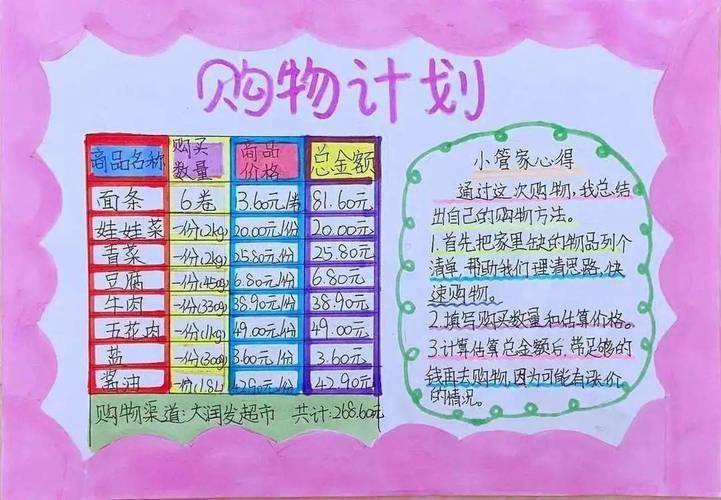 购物计划
商品名称 购买数量 商品价格 总金额
面条 6卷 3.60元/卷 81.60元
娃娃菜 一份(2kg) 20.00元/份 20.00元
青菜 一份(2kg) 25.80元/份 25.80元
豆腐 一份(450g) 6.80元/份 6.80元
牛肉 一份(330g) 38.90元/份 38.90元
五花肉 一份(1kg) 49.00元/份 49.00元
一份(300g) 3.60元/份 3.60元
酱油 一份(1.8L) 42.90元/份 42.90元
购物渠道:大润发超市 共计:268.60元
小管家心得
通过这次购物,我总结
出自己的购物方法。
1.首先把家里缺的物品列个
清单,帮助我们理清思路,快
速购物。
2.填写购买数量和估算价格。
3.计算估算总金额后,带足够的
钱再去购物,因为可能有涨价
的情况。